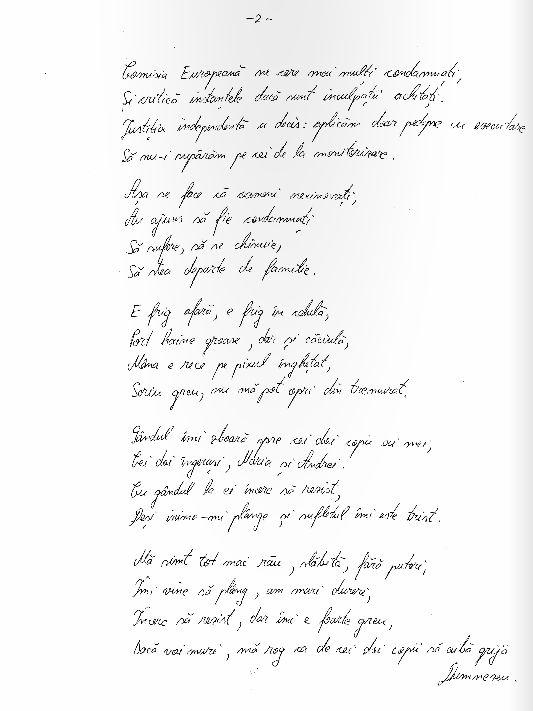 -2-
Comisia Europeană ne cere mai mulți condamnați,
Și critică instanțele dacă sunt inculpații achitați.
Justiția independentă a decis: aplicăm doar pedepse cu executare
Să nu-i supărăm pe cei de la monitorizare.
Așa se face că oameni nevinovați,
Au ajuns să fie condamnați
Să sufere, să se chinuie,
Să stea departe de familie.
E frig afară, e frig în celulă,
Port haine groase, dar și căciulă,
Mâna e rece pe pixul înghețat,
Scriu greu, nu mă pot opri din tremurat.
Gândul îmi zboară spre cei doi copii ai mei,
Cei doi îngerași, Maria și Andrei!
Cu gândul la ei încerc să rezist,
Deși inima-mi plânge și sufletul îmi este trist.
Mă simt tot mai rău, slăbită, fără puteri,
Îmi vine să plâng, am mari dureri,
Încerc să rezist, dar îmi e foarte greu,
Dacă voi muri, mă rog ca de cei doi copii să aibă grijă
Dumnezeu.